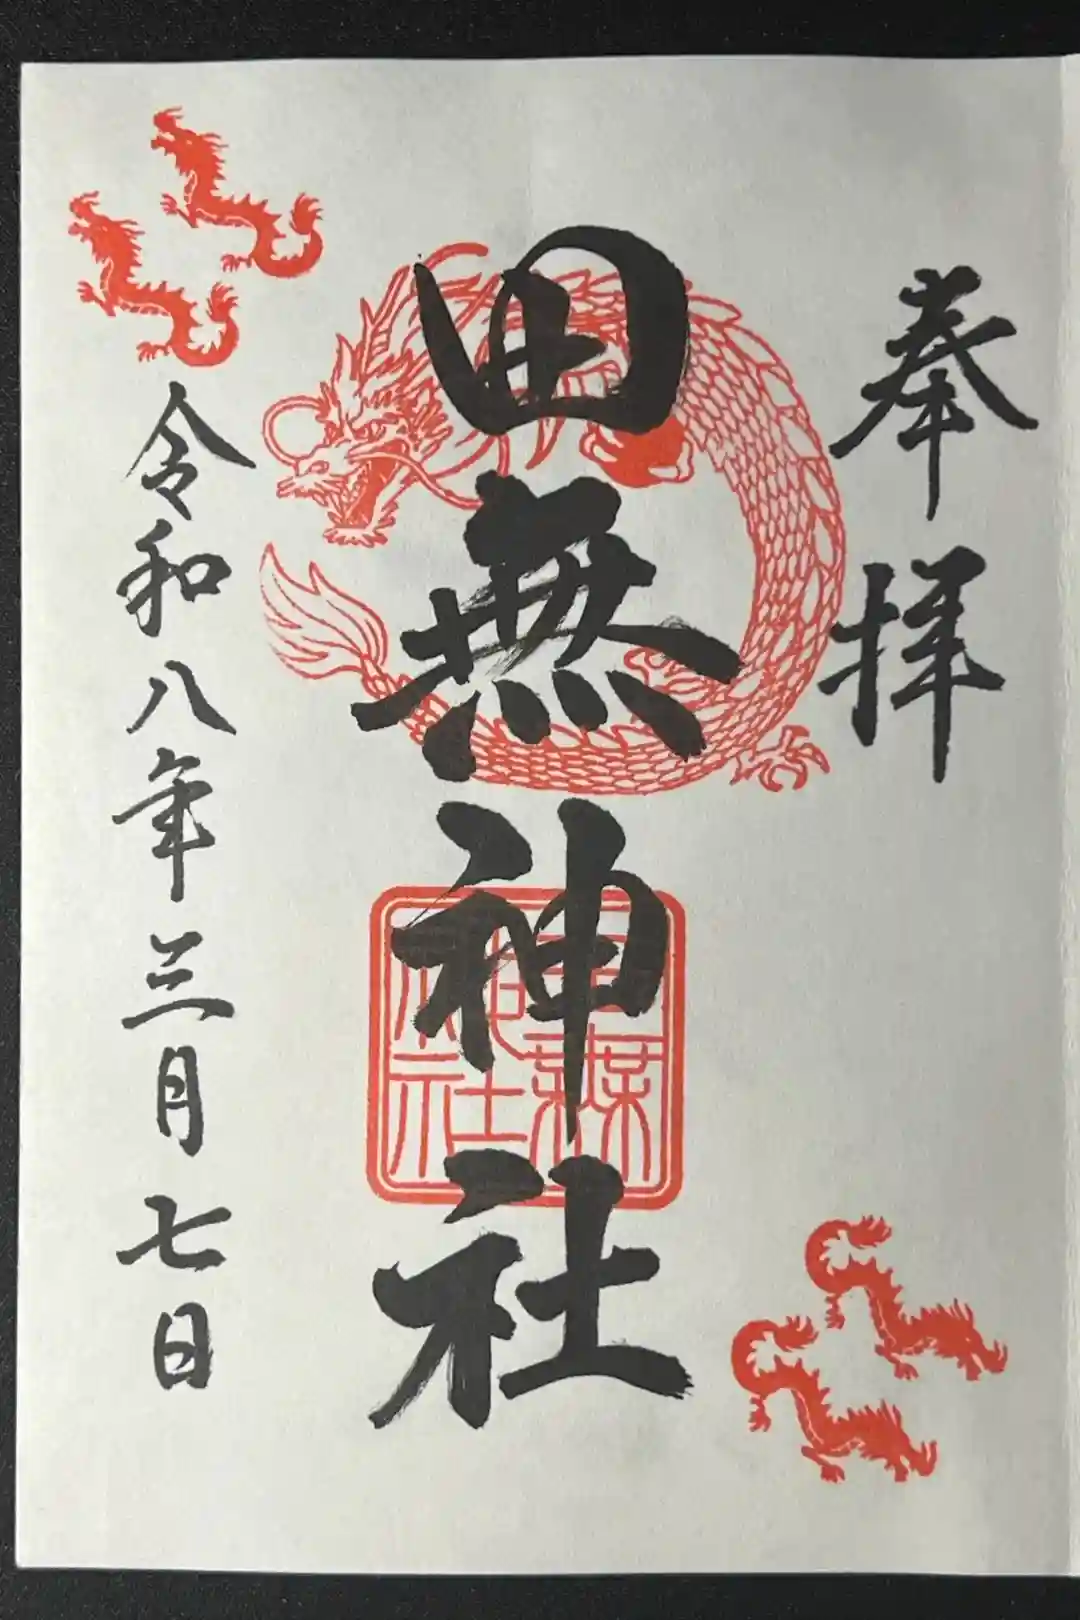 奉拝
田無神社
田無神社
令和八年三月七日